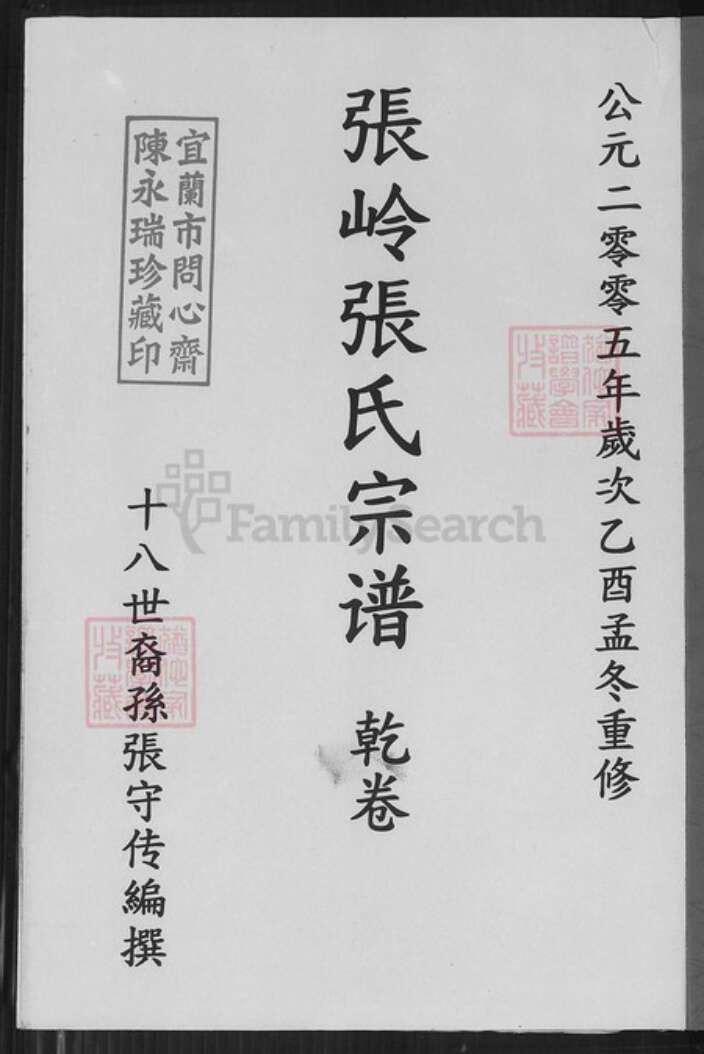 公元二零零五年歲次乙酉孟冬重修
張岭張氏宗谱 乾卷
宜蘭市問心齋
陳永瑞珍藏印
十八世裔孫張守传編撰
FamilySearch